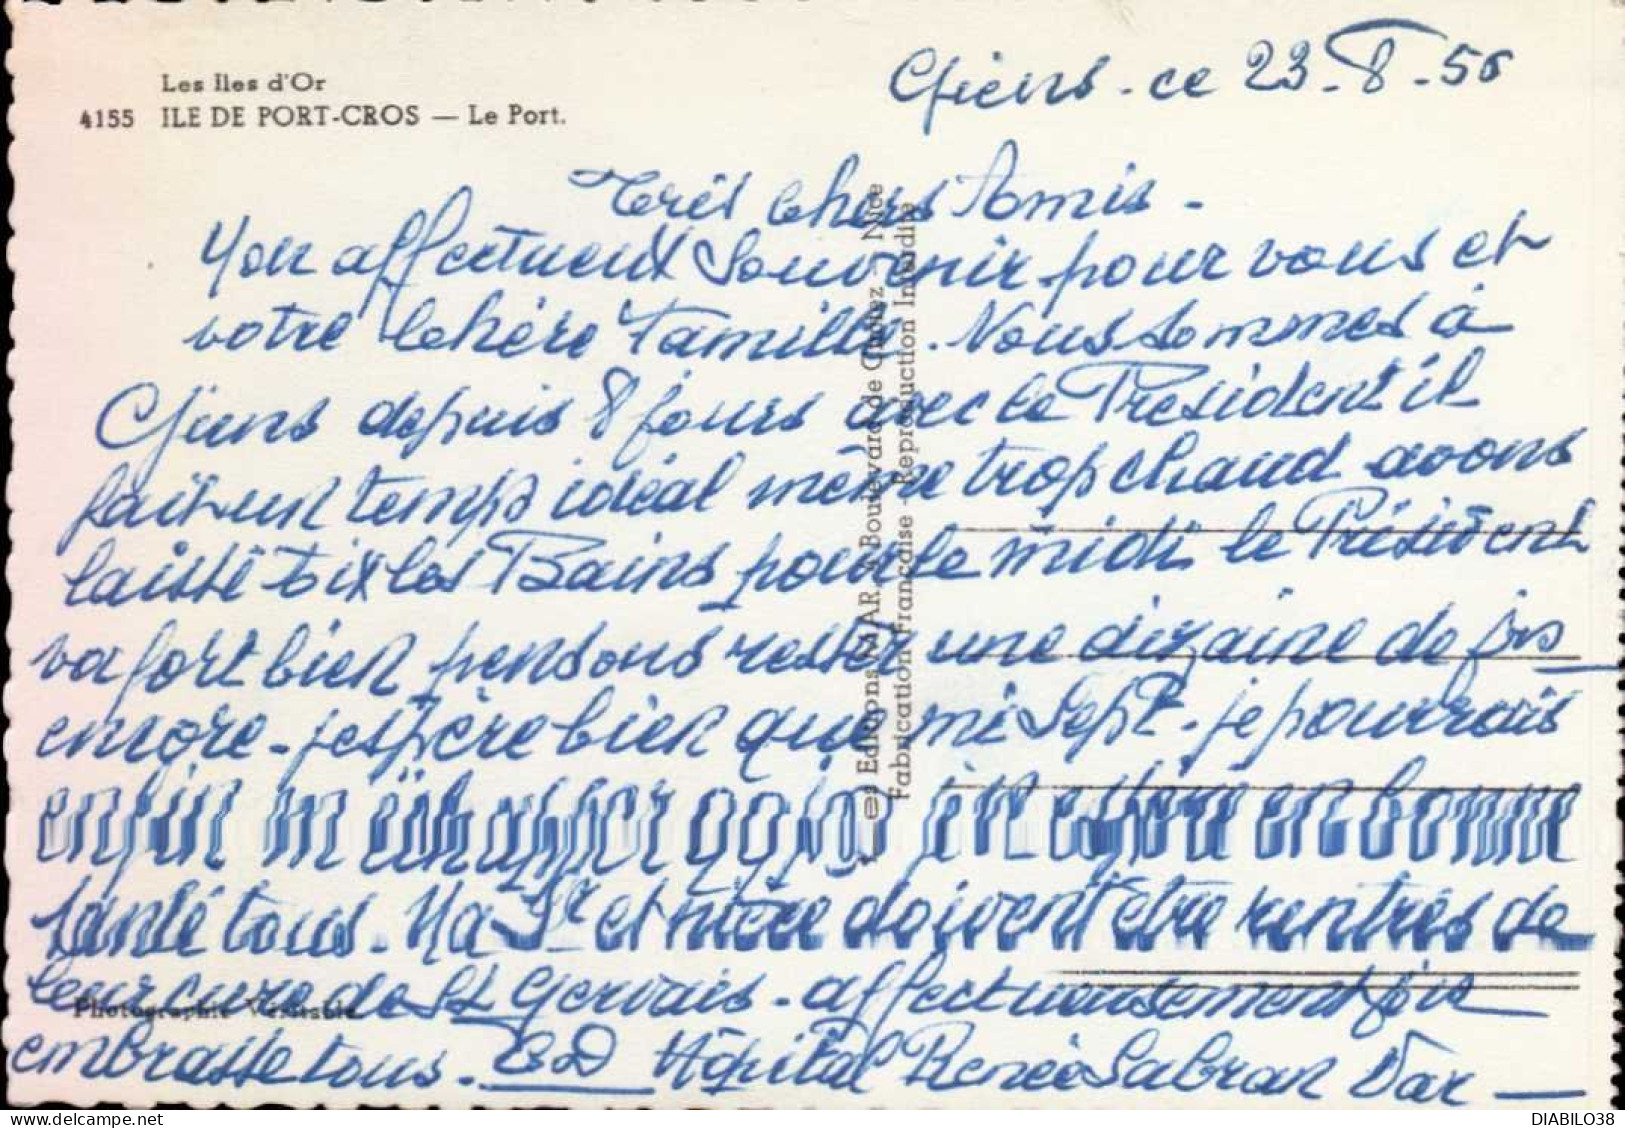 Les Iles d'Or
4155 ILE DE PORT-CROS — Le Port.
Giens - ce 23-8-56
Très chers Amis -
Mon affectueux Souvenir pour vous et
votre chère famille. Nous sommes à
Giens depuis 8 jours avec le Président il
fait un temps idéal même trop chaud avons
laissé Aix les Bains pour le midi le Président
va fort bien pensons rester une dizaine de jrs
encore - j'espère bien que mi Sept. je pourrais
enfin m'échapper qq js j'espère en bonne
santé tous. Ma Sr et mère doivent être rentrés de
leur cure de St Gervais - affectueusement
embrasse tous. Hôpital Renée Sabran Var
Les Editions MAR, Boulevard de Nice
Fabrication Française - Reproduction Interdite
Photographie Véritable
DIABILO38